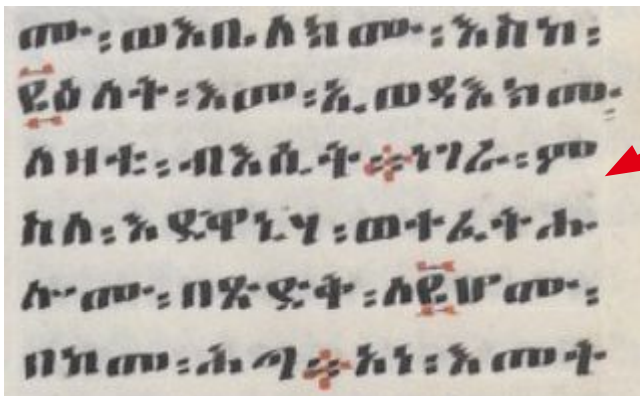 ሙ፡ወእቤለክሙ፡እስከ፡
፪ዕለት፡እመ፡ኢወዳእክሙ፡
ለዛቲ፡ብእሲት፨ነገራ፡ም
ስለ፡ወተፈትሑ
ሎሙ፡በጽድቅ፡ለ፪ሆሙ፡
በከመ፡ሕግ፨አነ፡እመት